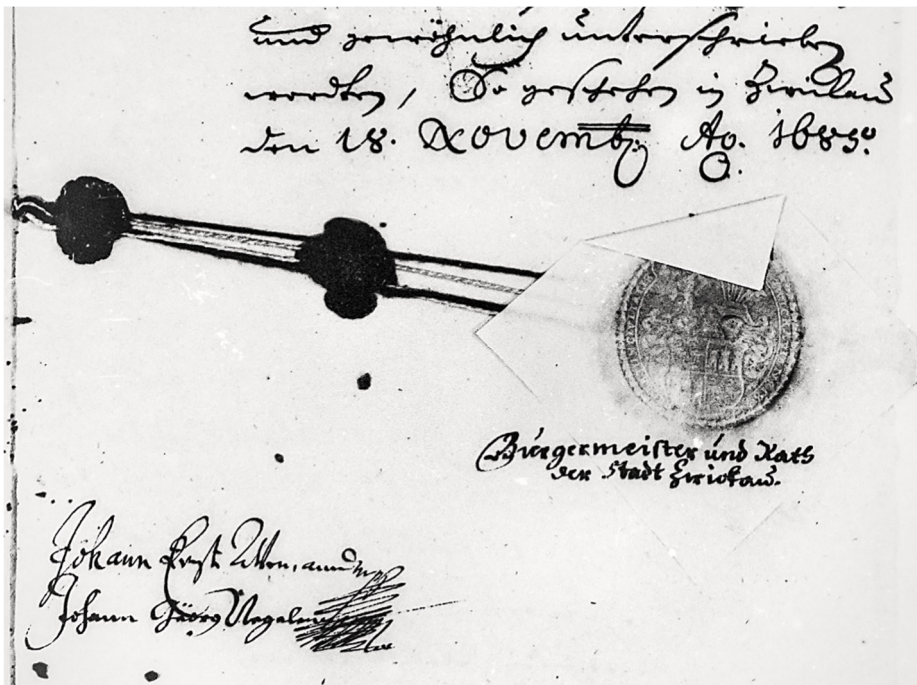 und gewöhnlich unterschrieben
worden, So geschehen in Zwickau
den 18. Novemb. Ao. 1685.
Bürgermeister und Rath
der Stadt Zwickau.
Johann Ernst
Johann Georg